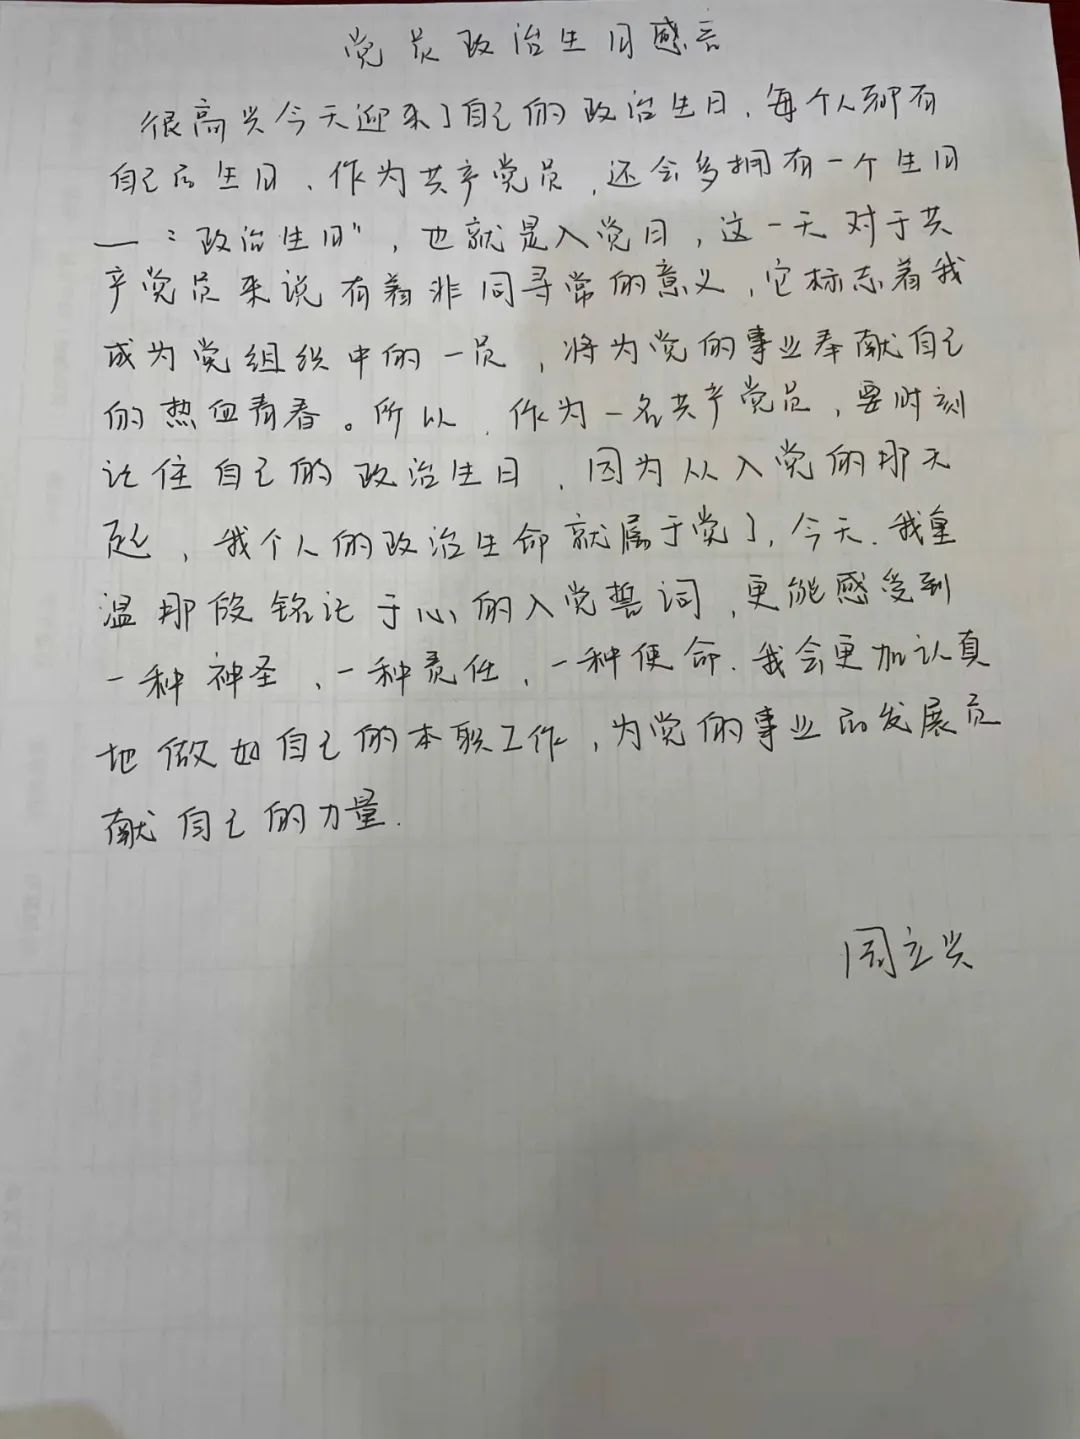 党员政治生日感言
很高兴今天迎来了自己的政治生日，每个人都有
自己的生日、作为共产党员，还会多拥有一个生日
——“政治生日”，也就是入党日，这一天对于共
产党员来说有着非同寻常的意义，它标志着我
成为党组织中的一员，将为党的事业奉献自己
的热血青春。所以，作为一名共产党员，要时刻
记住自己的政治生日，因为从入党的那天
起，我个人的政治生命就属于党了，今天，我重
温那段铭记于心的入党誓词，更能感受到
一种神圣、一种责任，一种使命．我会更加认真
地做好自己的本职工作，为党的事业的发展贡
献自己的力量．
周立兴